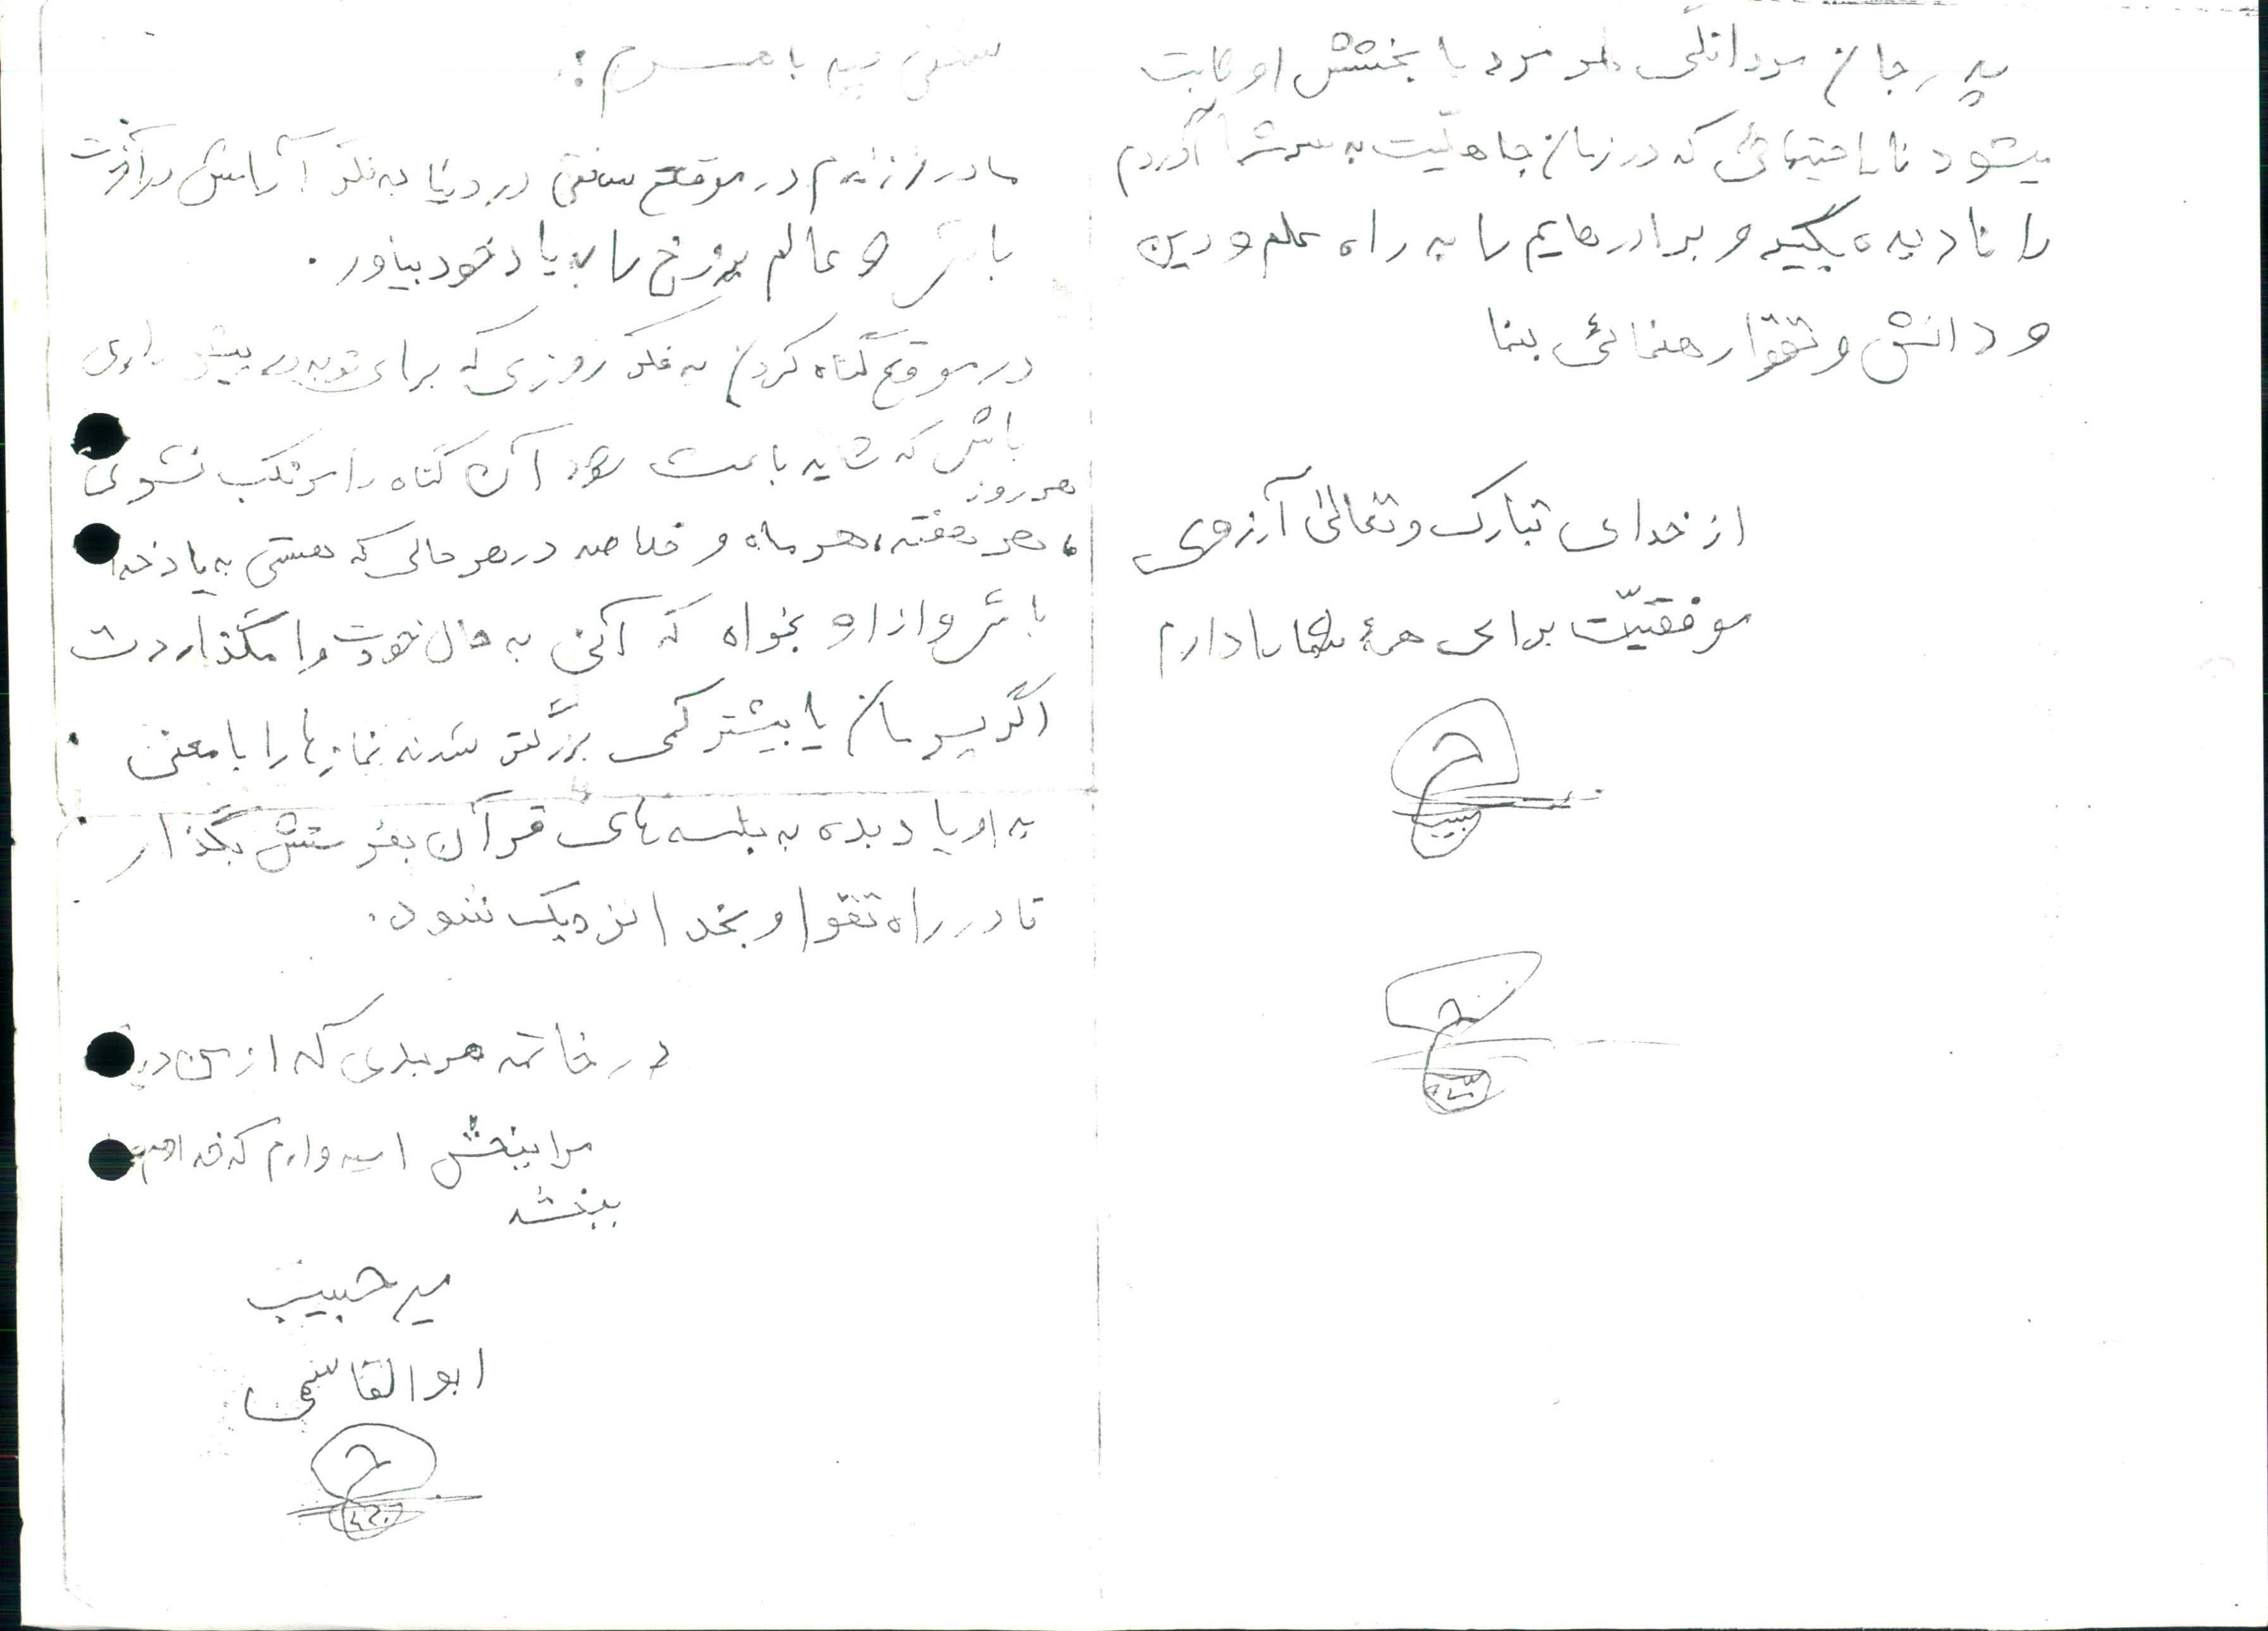 پدر جان مردانگی هر مرد با بخشش او ثابت
میشود ناراحتیهائی که در زمان جاهلیّت به سر شما آوردم
را نادیده بگیر و برادرهایم را به راه علم و دین
و دانش و تقوا رهنمائی بنما
از خدای تبارک و تعالی آرزوی
موفقیّت برای همهٔ شما را دارم
حبیب
سخنی با مادرم :
مادر عزیزم در موقع سختی در دنیا به فکر آرامش در آخرت
باش و عالم برزخ را به یاد خود بیاور .
در موقع گناه کردن به فکر روزی که برای توبه در پیش داری
باش که شاید باعث شود آن گناه را مرتکب نشوی
هر روز
، هر هفته، هر ماه و خلاصه در هر حالی که هستی به یاد خدا
باش و از او بخواه که آنی به حال خودت وا مگذاردت
اگر پسرمان یا بیشتر کمی بزرگتر شدند نمازها را با معنی
به او یاد بده به جلسه های قرآن بفرستش بگذار
تا در راه تقوا و بخدا نزدیک شود.
در خاتمه هر بدی که از من دیدی
مرا ببخش امیدوارم که خدا هم
ببخشد
حبیب
ابوالقاسمی